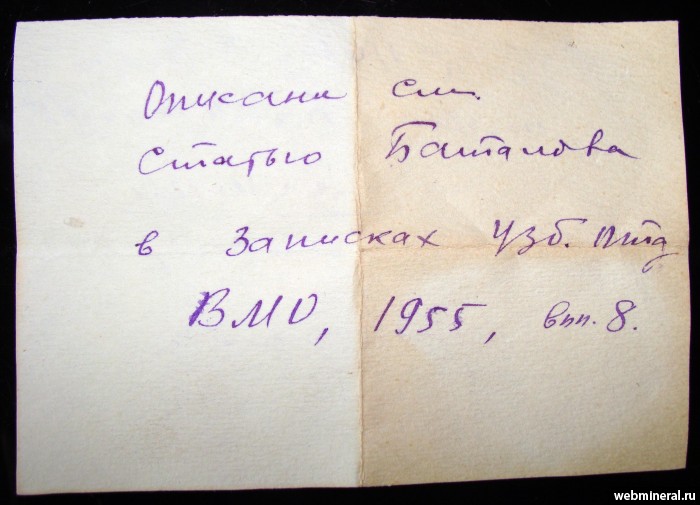 Описани см.
Статью Баталова
в Записках Узб. Отд
ВМО, 1955, вып. 8.
webmineral.ru